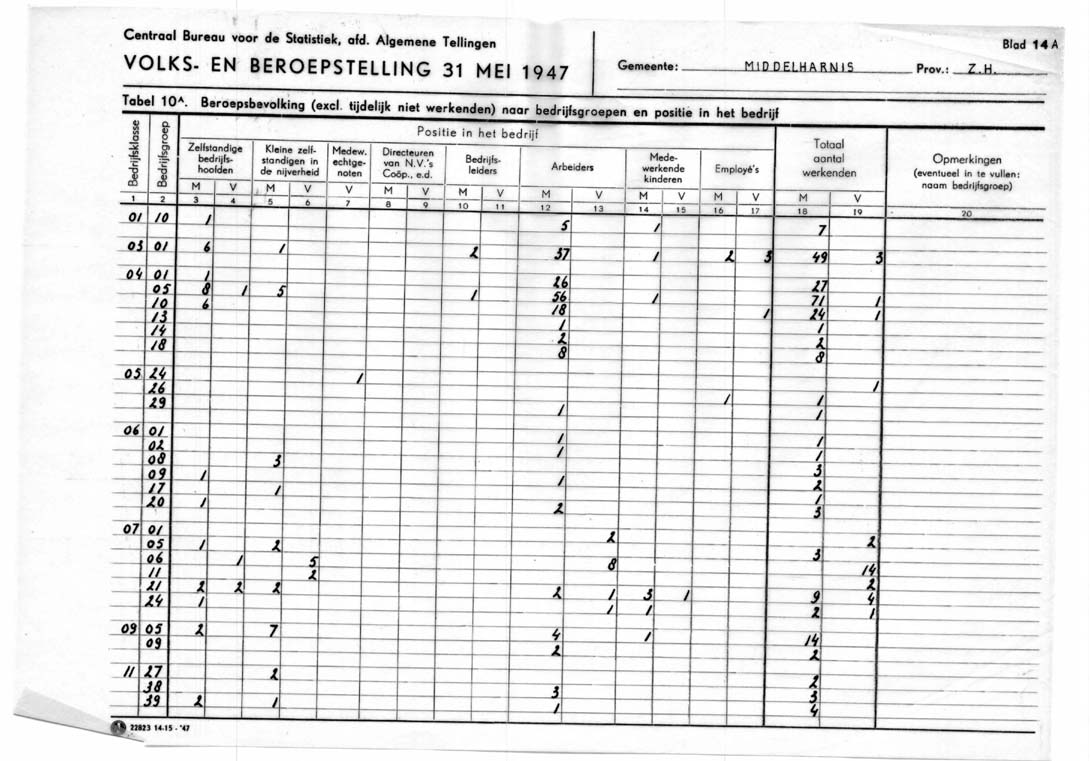 Centraal Bureau voor de Statistiek, afd. Algemene Tellingen
Blad 14 A
VOLKS- EN BEROEPSTELLING 31 MEI 1947
Gemeente: MIDDELHARNIS Prov.: Z.H.
Tabel 10A. Beroepsbevolking (excl. tijdelijk niet werkenden) naar bedrijfsgroepen en positie in het bedrijf
Bedrijfsklasse
Bedrijfsgroep
Positie in het bedrijf
Zelfstandige bedrijfs-hoofden
Kleine zelf-standigen in de nijverheid
Medew. echtge-noten
Directeuren van N.V.'s Coöp., e.d.
Bedrijfs-leiders
Arbeiders
Mede-werkende kinderen
Employé's
Totaal aantal werkenden
Opmerkingen (eventueel in te vullen: naam bedrijfsgroep)
M V M V V M V M V M V M V M V M V
1 2 3 4 5 6 7 8 9 10 11 12 13 14 15 16 17 18 19 20
01 10 1 5 1 7
03 01 6 1 2 37 1 2 3 49 3
04 01 1 26 27
05 8 1 5 1 56 1 71 1
10 6 18 1 24 1
13 1 1
14 2 2
18 8 8
05 24 1 1
26 1 1
29 1 1
06 01 1 1
02 1 1
08 3 3
09 1 1 2
17 1 1
20 1 2 3
07 01 2 2
05 1 2 3
06 1 5 8 14
11 2 2
21 2 2 2 2 1 3 1 9 4
24 1 1 1 2 1
09 05 2 7 4 1 14
09 2 2
11 27 2 2
38 3 3
39 2 1 1 4
22823 14-15 - '47